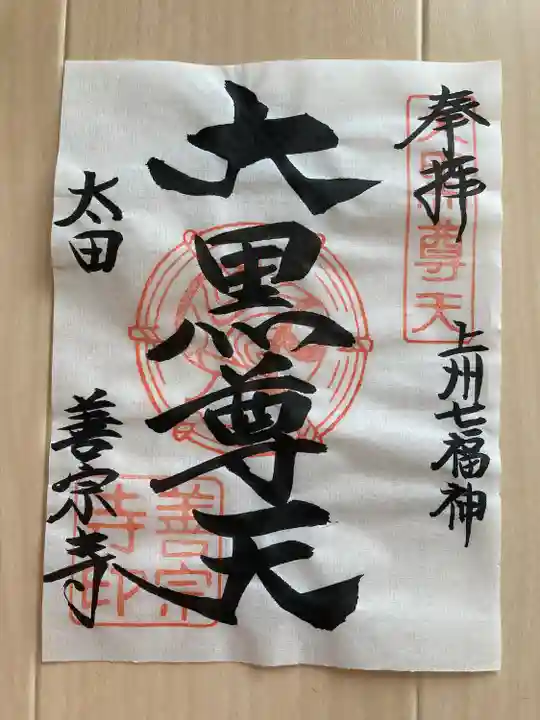 奉拝
大黒尊天
上州七福神
大黒尊天
太田
善宗寺
善宗
寺印